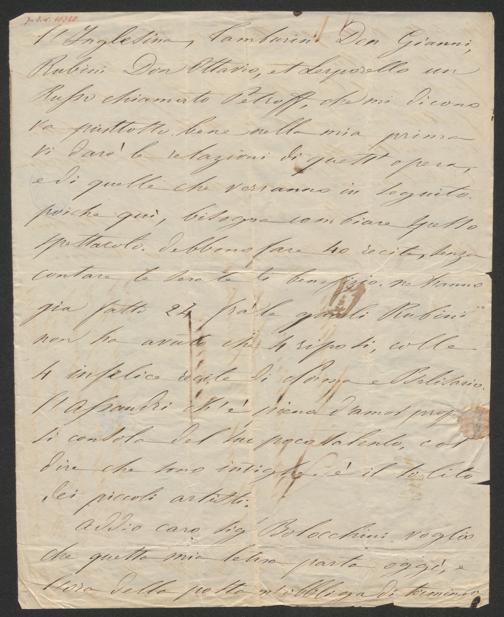 l'Inglesina, Tamburini Don Gianni,
Rubini Don Ottavio, et Leporello un
Russo chiamato Petroff, che mi dicono
va piuttosto bene nella mia prima
vi darò le relazioni di quest'opera,
e di quelle che verranno in seguito.
poiche qui, bisogna cambiare spesso
spettacolo. debbono fare 40 recite, senza
contare le serate di beneficio. ne hanno
già fatte 22, fra le quali Rubini
non ha avuto che 4 riposi, colle
4 infelice recite di Norma e
l'Assandri ch'è piena d'amor prop
si consola del suo poco talento, col
dire che sono intrighi. è il solito
dei piccoli artisti.
addio caro Sig. Bolocchini voglio
che questa mia lettera parta oggi, e
l'ora della posta m'obbliga di terminar